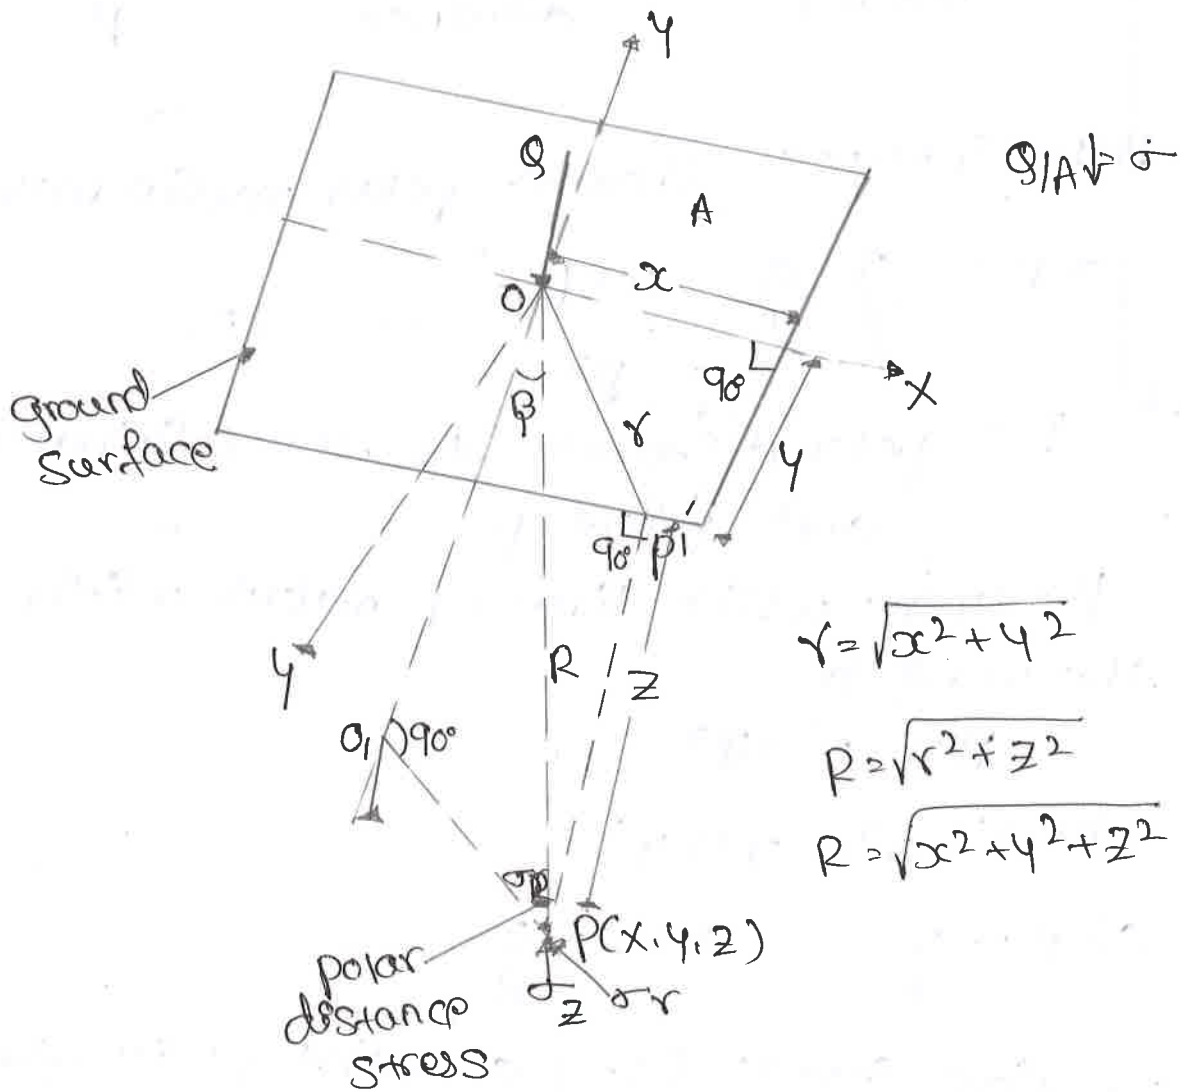 Y
Q
A
Q/A↓= σ
x
O
90°
X
ground
surface
β
r
y
90°
P'
y
R
Z
r=√x²+y²
O₁
90°
R=√r²+z²
R=√x²+y²+z²
P(x,y,z)
polar
distance
stress
σz
σr